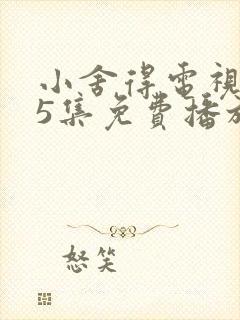 小舍得电視
5集免費播放
怒笑